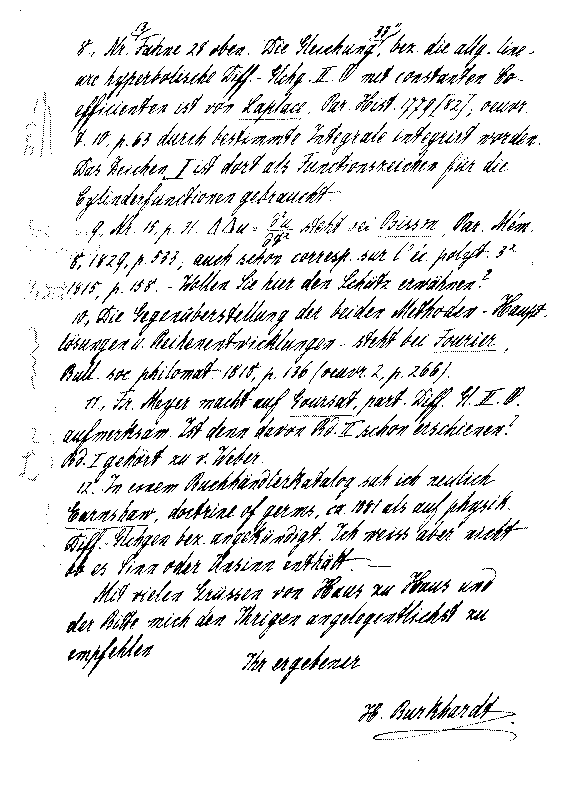 8, Nr. 13 Fahne 28 oben. Die Gleichung 33", bez. die allg. line-
are hyperbolische Diff.-Glchg. II. O mit constanten Co-
efficienten ist von Laplace, Par. Hist. 1779 [82], oeuvr.
t. 10, p. 63 durch bestimmte Integrale integrirt worden.
Das Zeichen I ist dort als Functionszeichen für die
Cylinderfunctionen gebraucht
9, Nr. 15, p. 31. ΔΔu = ∂²u/∂t² steht bei Poisson, Par. Mém.
8, 1829, p. 533, auch schon corresp. sur l'éc. polyt. 3²
1815, p. 158. - Wollen Sie hier den Schütz erwähnen?
10, Die Gegenüberstellung der beiden Methoden - Haupt-
lösungen u. Reihenentwicklungen - steht bei Fourier,
Bull. soc philomat 1818, p. 136 (oeuvr. 2, p. 266).
11, Fr. Meyer macht auf Goursat, part. Diff. Gl. II. O.
aufmerksam. Ist denn davon Bd. II schon erschienen?
Bd. I gehört zu v. Weber.
12. In einem Buchhändlerkatalog sah ich neulich
Earnshaw, doctrine of germs, ca. 1881 als auf physik.
Diff.-Glchgen bez. angekündigt. Ich weiss aber nicht
ob es Sinn oder Unsinn enthält.
Mit vielen Grüssen von Haus zu Haus und
der Bitte mich den Ihrigen angelegentlichst zu
empfehlen
Ihr ergebener
H. Burkhardt